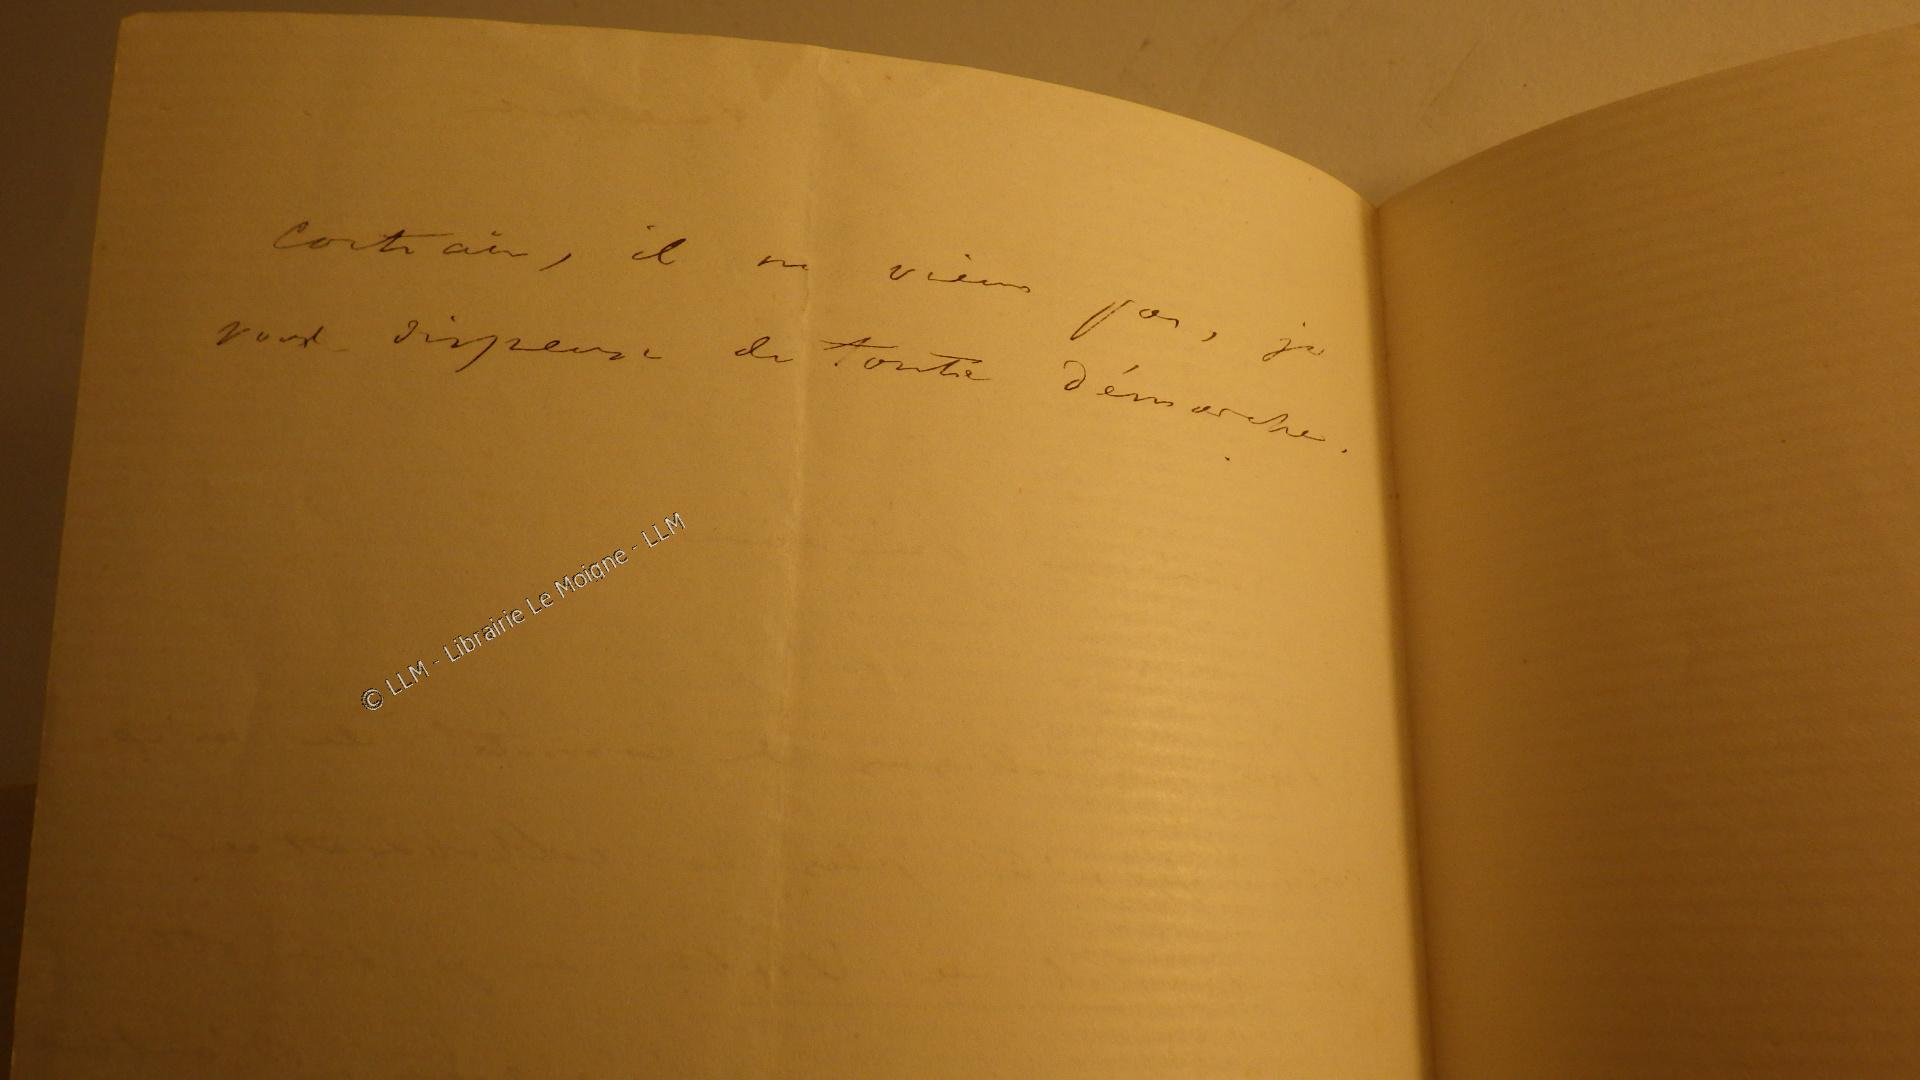 contraire, il ne viens pas, je
vous dispense de toute démarche.
© LLM - Librairie Le Moigne - LLM